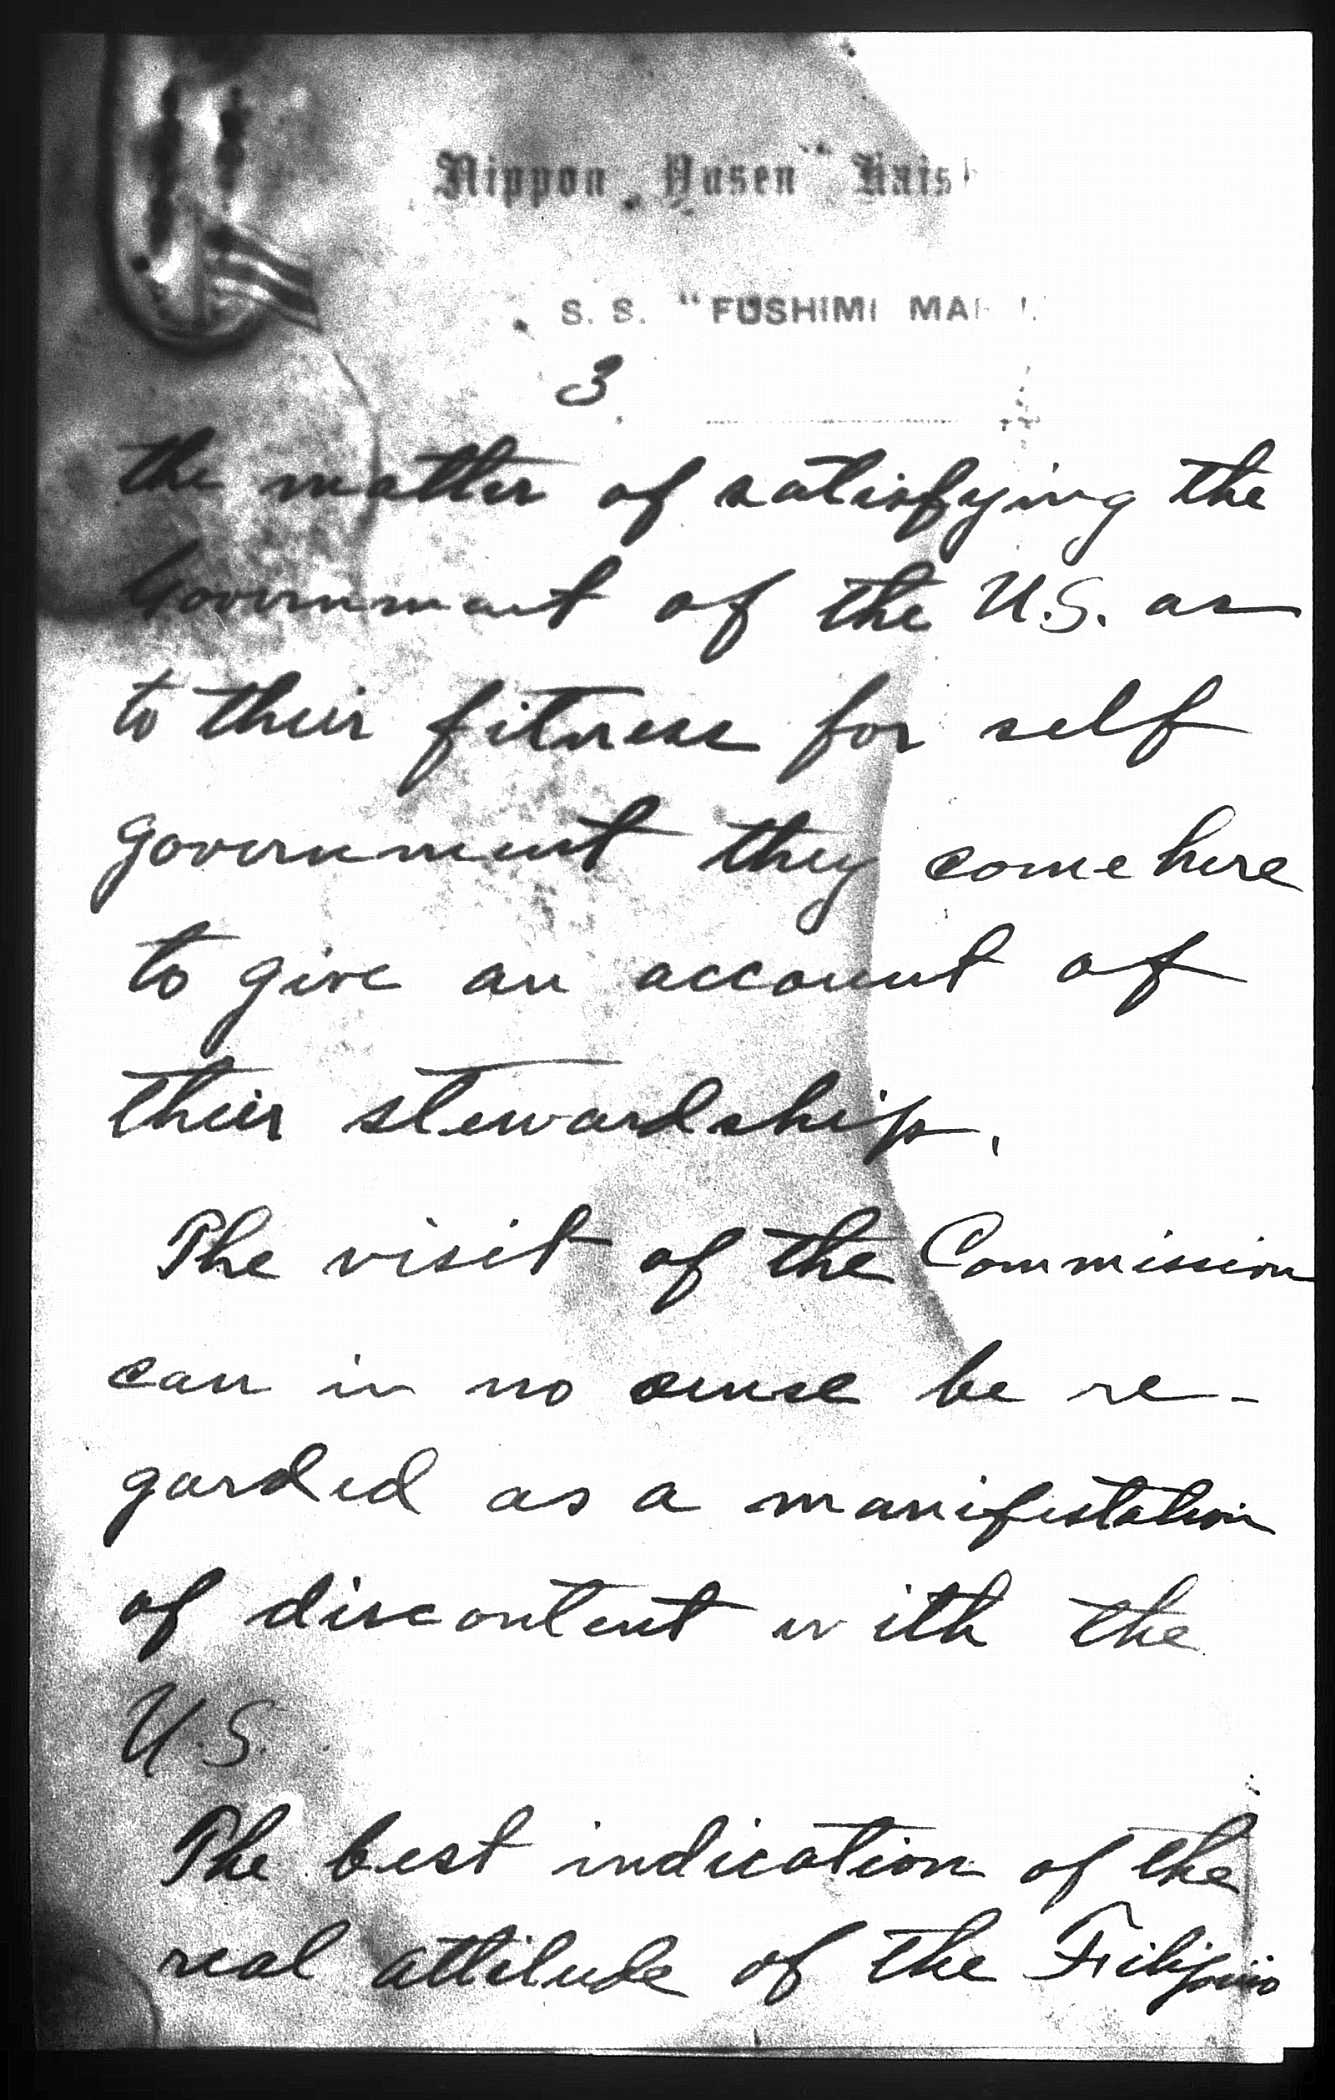 Nippon Yusen Kais
S. S. "FUSHIMI MA
3
the matter of satisfying the
Government of the U.S. as
to their fitness for self
government they come here
to give an account of
their stewardship.
The visit of the Commission
can in no sense be re-
garded as a manifestation
of discontent with the
U.S.
The best indication of the
real attitude of the Filipino